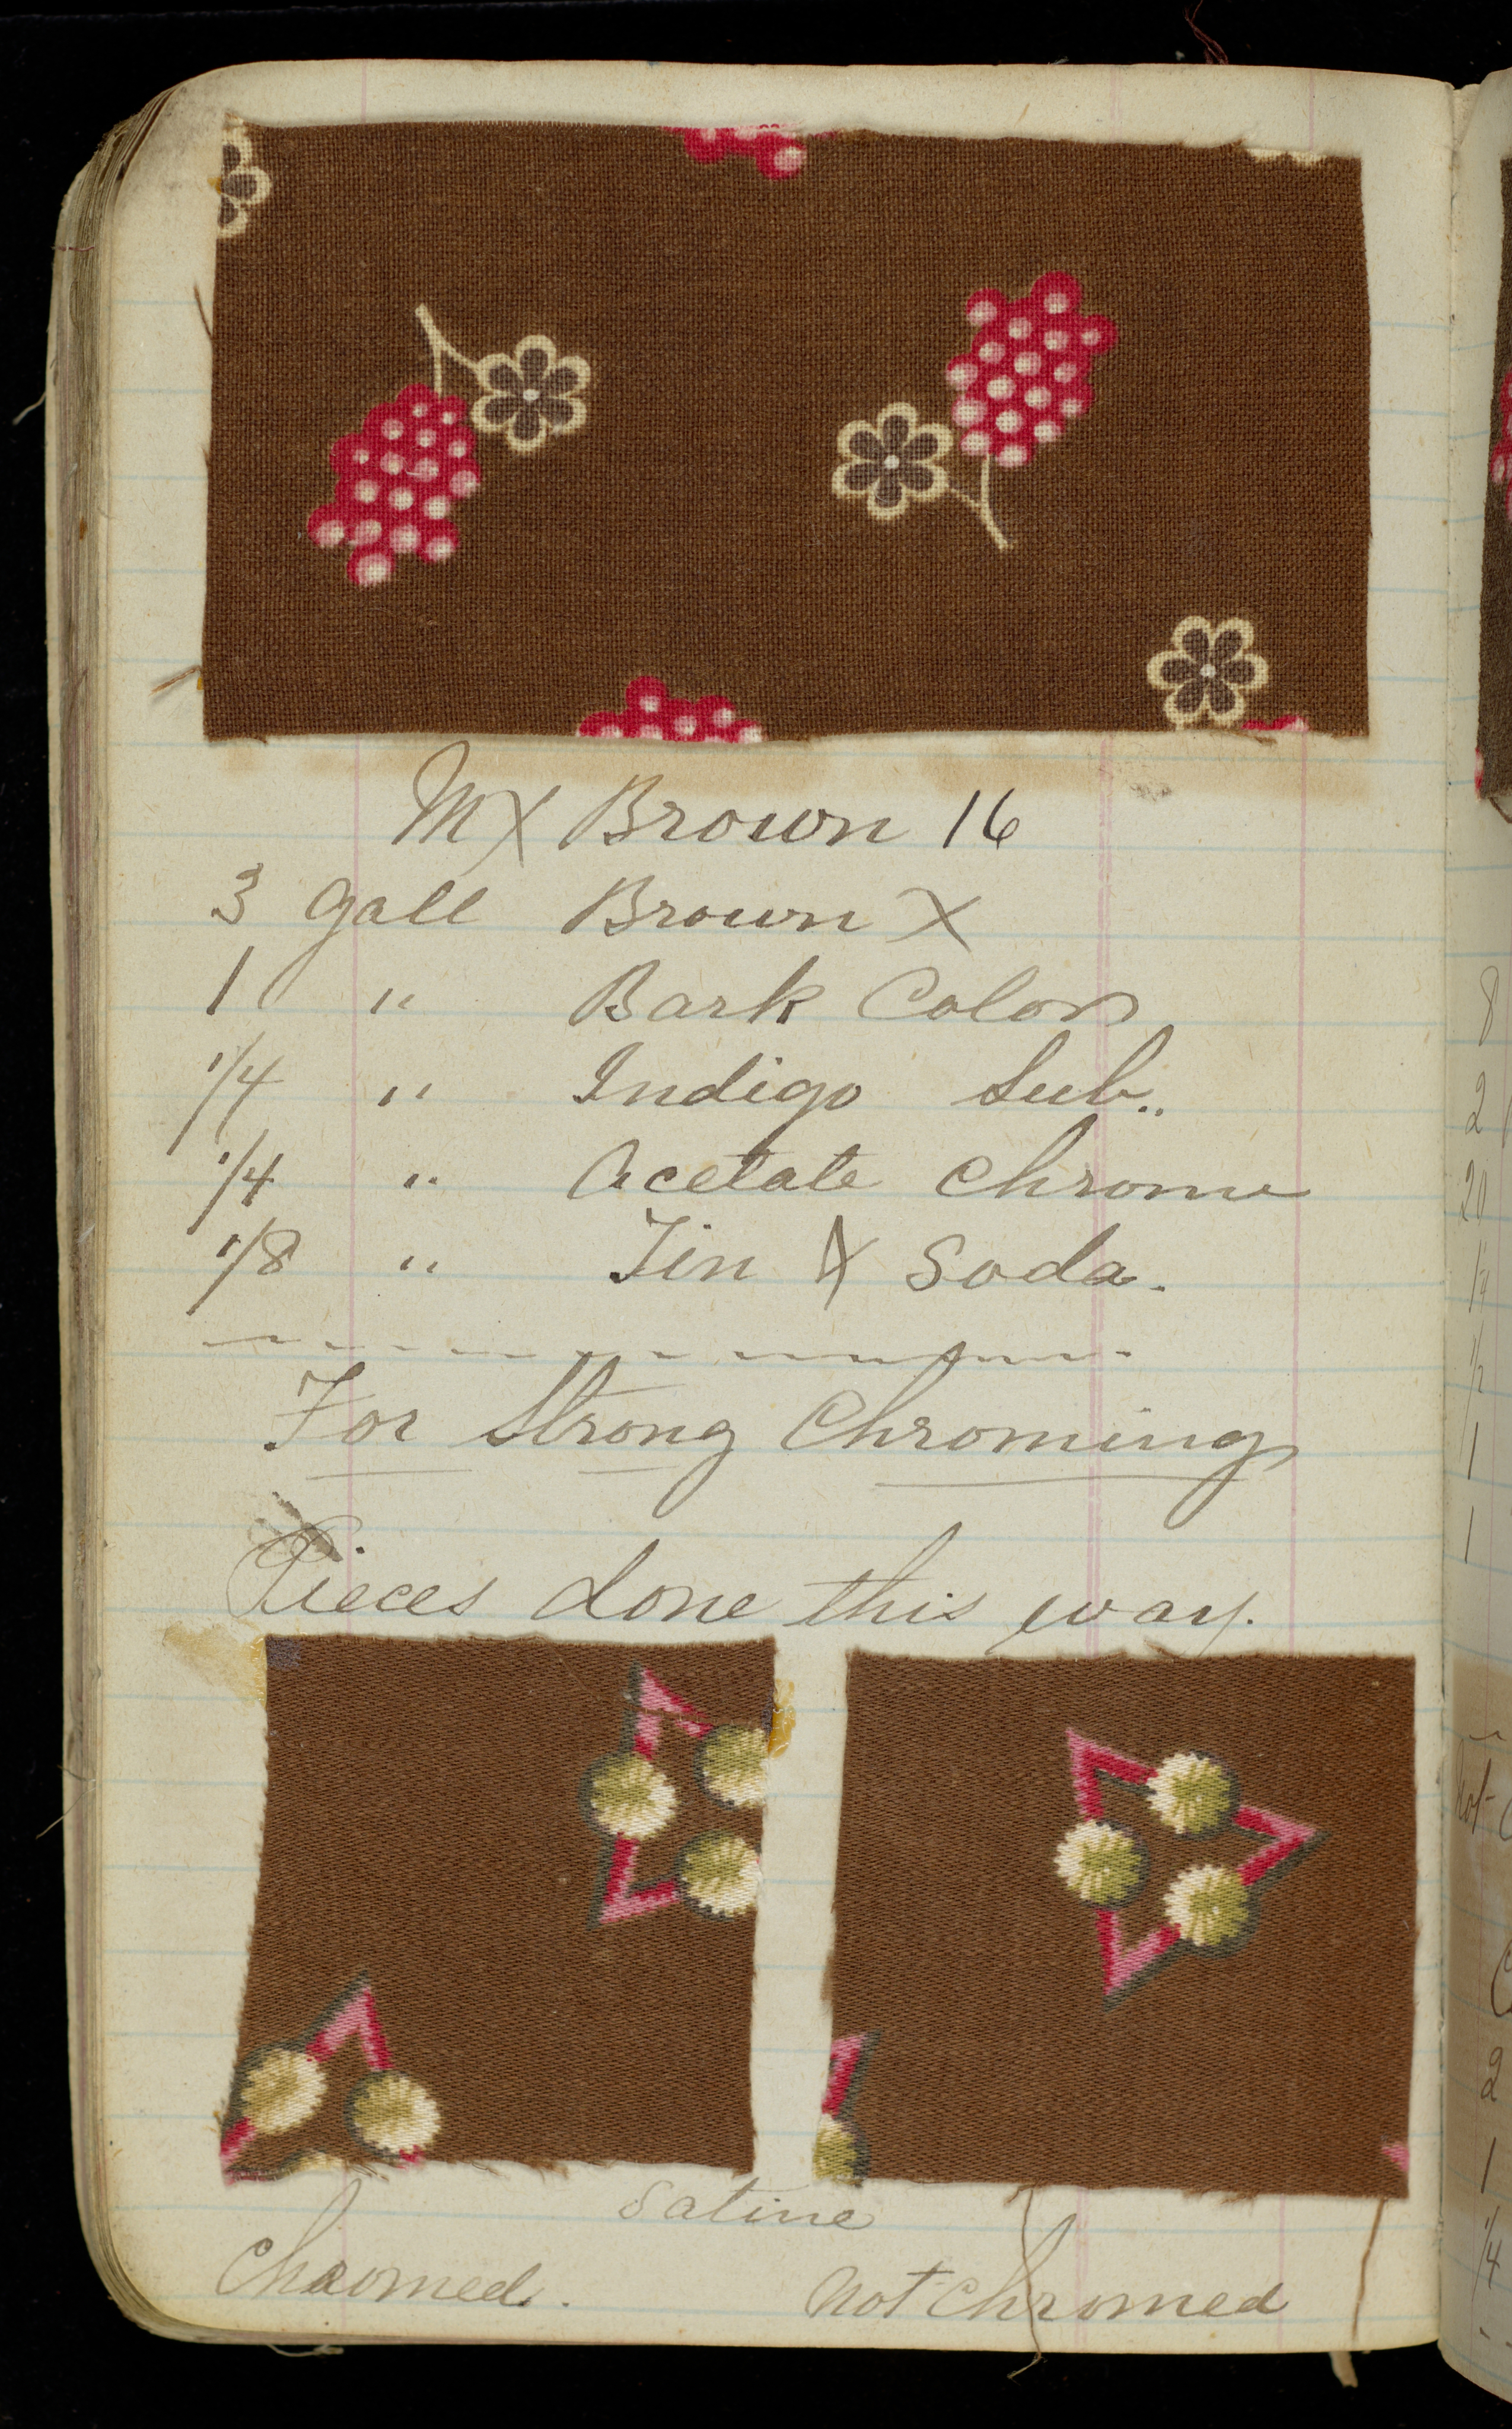 MX Brown 16
3 Gall Brown X
1 " Bark Color
1/4 " Indigo Sub..
1/4 " Acetate Chrome
1/8 " Tin & Soda.
For Strong Chroming
Pieces done this way.
Satine
Chromed.
Not Chromed
8
2
20
1/4
1/2
1
1
Not
2
1
1/4